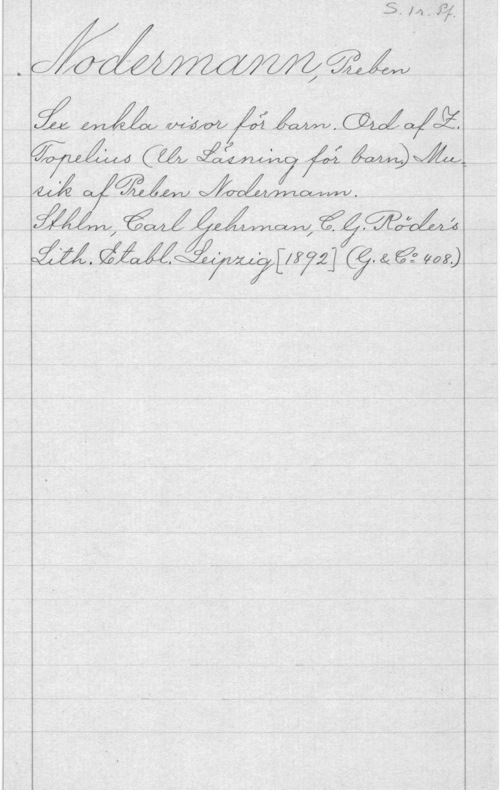 S. 1 r. Pf.
Nodermann, Preben
Sex enkla visor för barn. Ord af Z.
Topelius (Ur Läsning för barn) Mu-
sik af Preben Nodermann.
Sthlm, Carl Gehrman, C. G. Röder's
Lith. Etabl. Leipzig [1892] (G. & Cº 408.)